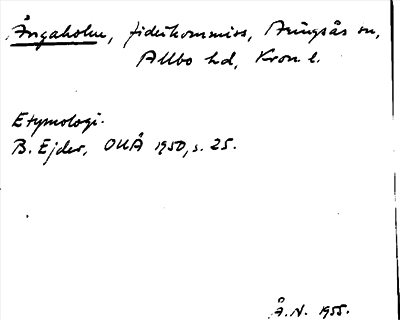 Ängaholm, fideikommiss, Aringsås sn,
Allbo hd, Kron. l.
Etymologi.
B. Ejder, OUÅ 1950, s. 25.
Å. N. 1955.